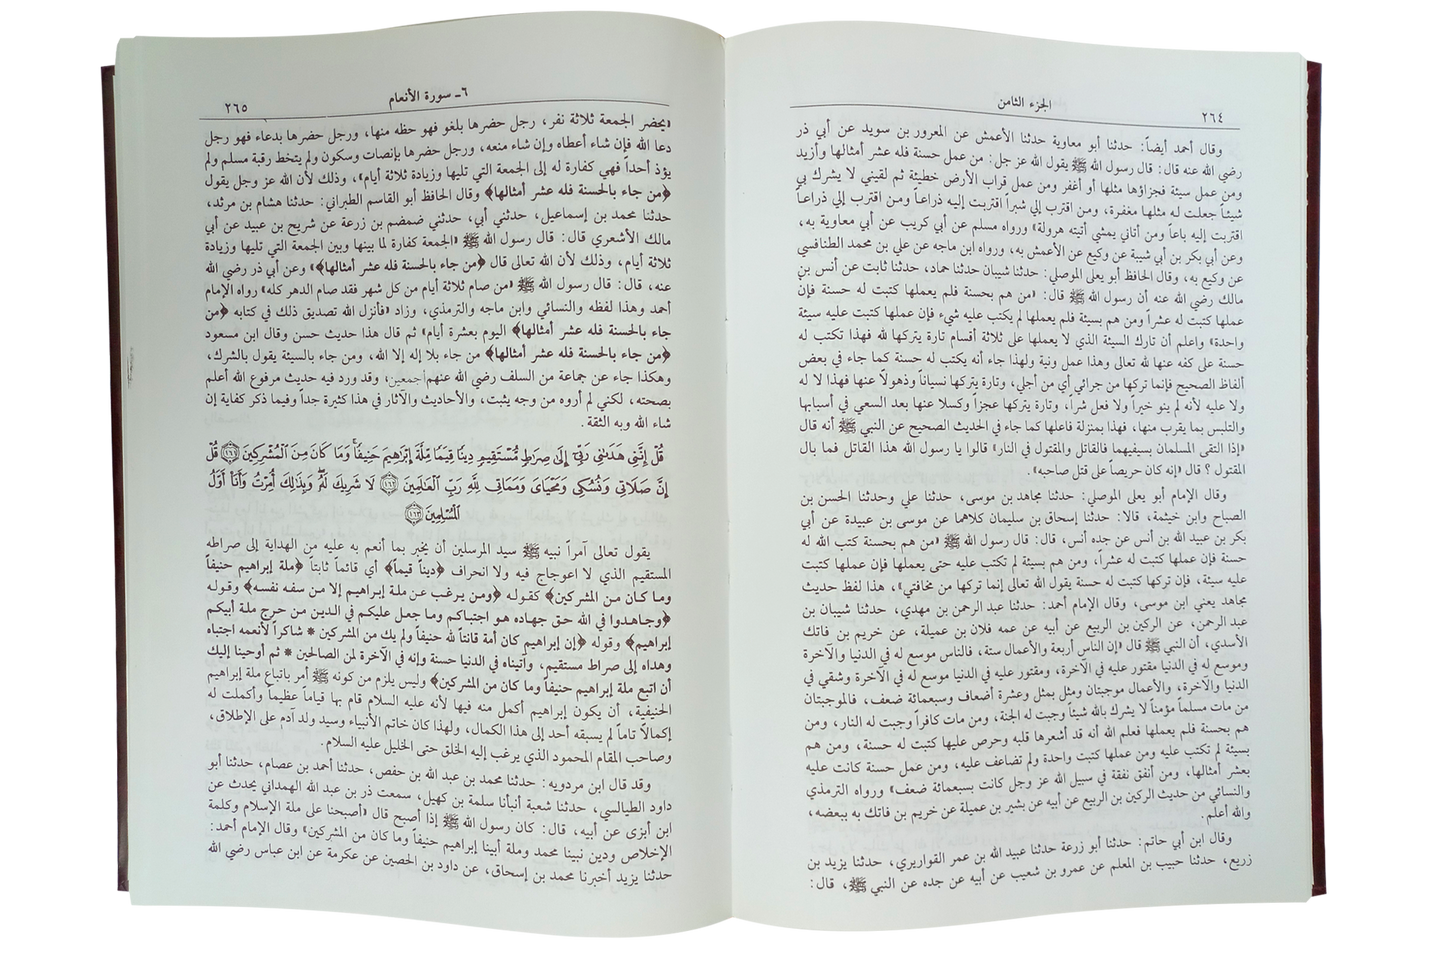 ٢٦٤
الجزء الثامن
وقال أحمد أيضاً: حدثنا أبو معاوية حدثنا الأعمش عن المعرور بن سويد عن أبي ذر
رضي الله عنه قال: قال رسول الله ﷺ يقول الله عز جل: من عمل حسنة فله عشر أمثالها وأزيد
ومن عمل سيئة فجزاؤها مثلها أو أغفر ومن عمل قراب الأرض خطيئة ثم لقيني لا يشرك بي
شيئاً جعلت له مثلها مغفرة، ومن اقترب إلي شبراً اقتربت إليه ذراعاً ومن اقترب إلي ذراعاً
اقتربت إليه باعاً ومن أتاني يمشي أتيته هرولة» ورواه مسلم عن أبي كريب عن أبي معاوية به،
وعن أبي بكر بن أبي شيبة عن وكيع عن الأعمش به، ورواه ابن ماجه عن علي بن محمد الطنافسي
عن وكيع به، وقال الحافظ أبو يعلى الموصلي: حدثنا شيبان حدثنا حماد، حدثنا ثابت عن أنس بن
مالك رضي الله عنه أن رسول الله ﷺ قال: «من هم بحسنة فلم يعملها كتبت له حسنة فإن
عملها كتبت له عشراً ومن هم بسيئة فلم يعملها لم يكتب عليه شيء فإن عملها كتبت عليه سيئة
واحدة» واعلم أن تارك السيئة الذي لا يعملها على ثلاثة أقسام تارة يتركها لله فهذا تكتب له
حسنة على كفه عنها لله تعالى وهذا عمل ونية ولهذا جاء أنه يكتب له حسنة كما جاء في بعض
ألفاظ الصحيح فإنما تركها من جرائي أي من أجلي، وتارة يتركها نسياناً وذهولاً عنها فهذا لا له
ولا عليه لأنه لم ينو خيراً ولا فعل شراً، وتارة يتركها عجزاً وكسلا عنها بعد السعي في أسبابها
والتلبس بما يقرب منها، فهذا بمنزلة فاعلها كما جاء في الحديث الصحيح عن النبي ﷺ أنه قال
«إذا التقى المسلمان بسيفيهما فالقاتل والمقتول في النار» قالوا يا رسول الله هذا القاتل فما بال
المقتول ؟ قال «إنه كان حريصاً على قتل صاحبه».
وقال الإمام أبو يعلى الموصلي: حدثنا مجاهد بن موسى، حدثنا علي وحدثنا الحسن بن
الصباح وابن خيثمة، قالا: حدثنا إسحاق بن سليمان كلاهما عن موسى بن عبيدة عن أبي
بكر بن عبيد الله بن أنس عن جده أنس، قال: قال رسول الله ﷺ «من هم بحسنة كتب الله له
حسنة فإن عملها كتبت له عشراً، ومن هم بسيئة لم تكتب عليه حتى يعملها فإن عملها كتبت
عليه سيئة، فإن تركها كتبت له حسنة يقول الله تعالى إنما تركها من مخافتي»، هذا لفظ حديث
مجاهد يعني ابن موسى، وقال الإمام أحمد: حدثنا عبد الرحمن بن مهدي، حدثنا شيبان بن
عبد الرحمن، عن الركين بن الربيع عن أبيه عن عمه فلان بن عميلة، عن خريم بن فاتك
الأسدي، أن النبي ﷺ قال «إن الناس أربعة والأعمال ستة، فالناس موسع له في الدنيا والآخرة
وموسع له في الدنيا مقتور عليه في الآخرة، ومقتور عليه في الدنيا موسع له في الآخرة وشقي في
الدنيا والآخرة، والأعمال موجبتان ومثل بمثل وعشرة أضعاف وسبعمائة ضعف، فالموجبتان
من مات مسلماً مؤمناً لا يشرك بالله شيئاً وجبت له الجنة، ومن مات كافراً وجبت له النار، ومن
هم بحسنة فلم يعملها فعلم الله أنه قد أشعرها قلبه وحرص عليها كتبت له حسنة، ومن هم
بسيئة لم تكتب عليه ومن عملها كتبت واحدة ولم تضاعف عليه، ومن عمل حسنة كانت عليه
بعشر أمثالها، ومن أنفق نفقة في سبيل الله عز وجل كانت بسبعمائة ضعف» ورواه الترمذي
والنسائي من حديث الركين بن الربيع عن أبيه عن بشير بن عميلة عن خريم بن فاتك به ببعضه،
والله أعلم.
وقال ابن أبي حاتم: حدثنا أبو زرعة حدثنا عبيد الله بن عمر القواريري، حدثنا يزيد بن
زريع، حدثنا حبيب بن المعلم عن عمرو بن شعيب عن أبيه عن جده عن النبي ﷺ، قال:
٦ـ سورة الأنعام
٢٦٥
«يحضر الجمعة ثلاثة نفر، رجل حضرها بلغو فهو حظه منها، ورجل حضرها بدعاء فهو رجل
دعا الله فإن شاء أعطاه وإن شاء منعه، ورجل حضرها بإنصات وسكون ولم يتخط رقبة مسلم ولم
يؤذ أحداً فهي كفارة له إلى الجمعة التي تليها وزيادة ثلاثة أيام»، وذلك لأن الله عز وجل يقول
﴿من جاء بالحسنة فله عشر أمثالها﴾ وقال الحافظ أبو القاسم الطبراني: حدثنا هشام بن مرثد،
حدثنا محمد بن إسماعيل، حدثني أبي، حدثني ضمضم بن زرعة عن شريح بن عبيد عن أبي
مالك الأشعري قال: قال رسول الله ﷺ «الجمعة كفارة لما بينها وبين الجمعة التي تليها وزيادة
ثلاثة أيام، وذلك لأن الله تعالى قال ﴿من جاء بالحسنة فله عشر أمثالها﴾» وعن أبي ذر رضي الله
عنه، قال: قال رسول الله ﷺ «من صام ثلاثة أيام من كل شهر فقد صام الدهر كله» رواه الإمام
أحمد وهذا لفظه والنسائي وابن ماجه والترمذي، وزاد «فأنزل الله تصديق ذلك في كتابه ﴿من
جاء بالحسنة فله عشر أمثالها﴾ اليوم بعشرة أيام» ثم قال هذا حديث حسن وقال ابن مسعود
﴿من جاء بالحسنة فله عشر أمثالها﴾ من جاء بلا إله إلا الله، ومن جاء بالسيئة يقول بالشرك،
وهكذا جاء عن جماعة من السلف رضي الله عنهم أجمعين، وقد ورد فيه حديث مرفوع الله أعلم
بصحته، لكني لم أروه من وجه يثبت، والأحاديث والآثار في هذا كثيرة جداً وفيما ذكر كفاية إن
شاء الله وبه الثقة.
قُلْ إِنَّنِي هَدَىٰنِي رَبِّي إِلَىٰ صِرَٰطٍ مُّسْتَقِيمٍ دِينًا قِيَمًا مِّلَّةَ إِبْرَٰهِيمَ حَنِيفًا ۚ وَمَا كَانَ مِنَ ٱلْمُشْرِكِينَ ١٦١ قُلْ
إِنَّ صَلَاتِي وَنُسُكِي وَمَحْيَايَ وَمَمَاتِي لِلَّهِ رَبِّ ٱلْعَٰلَمِينَ ١٦٢ لَا شَرِيكَ لَهُۥ ۖ وَبِذَٰلِكَ أُمِرْتُ وَأَنَا۠ أَوَّلُ
ٱلْمُسْلِمِينَ ١٦٣
يقول تعالى آمراً نبيه ﷺ سيد المرسلين أن يخبر بما أنعم به عليه من الهداية إلى صراطه
المستقيم الذي لا اعوجاج فيه ولا انحراف ﴿ديناً قيماً﴾ أي قائماً ثابتاً ﴿ملة إبراهيم حنيفاً
وما كان من المشركين﴾ كقوله ﴿ومن يرغب عن ملة إبراهيم إلا من سفه نفسه﴾ وقوله
﴿وجاهدوا في الله حق جهاده هو اجتباكم وما جعل عليكم في الدين من حرج ملة أبيكم
إبراهيم﴾ وقوله ﴿إن إبراهيم كان أمة قانتاً لله حنيفاً ولم يك من المشركين * شاكراً لأنعمه اجتباه
وهداه إلى صراط مستقيم، وآتيناه في الدنيا حسنة وإنه في الآخرة لمن الصالحين * ثم أوحينا إليك
أن اتبع ملة إبراهيم حنيفاً وما كان من المشركين﴾ وليس يلزم من كونه ﷺ أمر باتباع ملة إبراهيم
الحنيفية، أن يكون إبراهيم أكمل منه فيها لأنه عليه السلام قام بها قياماً عظيماً وأكملت له
إكمالاً تاماً لم يسبقه أحد إلى هذا الكمال، ولهذا كان خاتم الأنبياء وسيد ولد آدم على الإطلاق،
وصاحب المقام المحمود الذي يرغب إليه الخلق حتى الخليل عليه السلام.
وقد قال ابن مردويه: حدثنا محمد بن عبد الله بن حفص، حدثنا أحمد بن عصام، حدثنا أبو
داود الطيالسي، حدثنا شعبة أنبأنا سلمة بن كهيل، سمعت ذر بن عبد الله الهمداني يحدث عن
ابن أبزى عن أبيه، قال: كان رسول الله ﷺ إذا أصبح قال «أصبحنا على ملة الإسلام وكلمة
الإخلاص ودين نبينا محمد وملة أبينا إبراهيم حنيفاً وما كان من المشركين» وقال الإمام أحمد:
حدثنا يزيد أخبرنا محمد بن إسحاق، عن داود بن الحصين عن عكرمة عن ابن عباس رضي الله